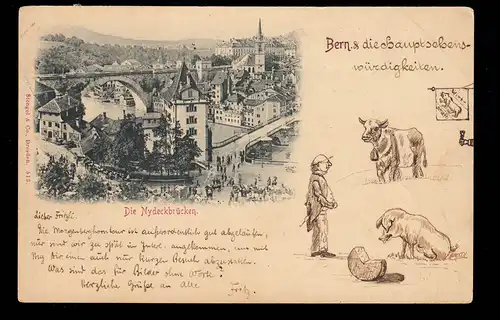 Bern. & die Hauptsehens-
würdigkeiten.
Stengel & Co., Dresden.
Die Nydeckbrücken.
Lieber Fritzli.
Die Morgen ist ausserordentlich gut abgelaufen,
nur sind wir zu spät in angekommen, um mit
Dir einen auch nur kurzen Besuch abzustatten.
Was sind das für Bilder ohne Worte?
Herzliche Grüsse an alle
Fritz.